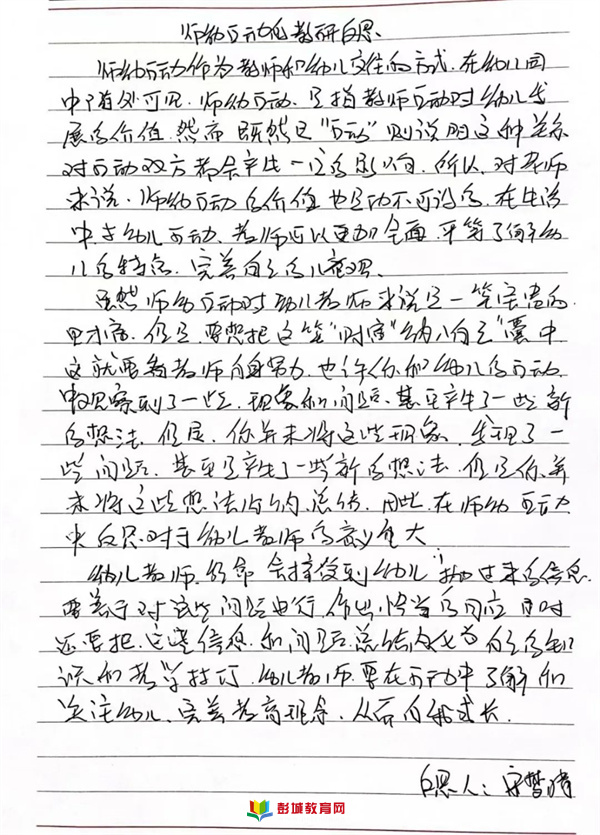 师幼互动的教研反思
师幼互动作为教师和幼儿交往的方式，在幼儿园
中随处可见，师幼互动，是指教师互动对幼儿发
展的价值，然而既然是"互动"则说明这种关系
对互动双方都会产生一定的影响，所以，对老师
来说，师幼互动的价值也是功不可没的，在生活
中与幼儿互动，教师可以更加全面，平等了解幼
儿的特点，完善自己的儿童观。
虽然师幼互动对幼儿教师来说是一笔宝贵的
财富，但是，要想把这笔"财富"纳入自己"囊中
这就要靠教师自身努力，也许你和幼儿的互动
中观察到了一些，现象和问题，甚至产生了一些新
的想法，但是，你并未将这些现象，发现了一
些问题，甚至是产生了一些新的想法，但是你并
未将这些想法归纳，总结，因此，在师幼互动
中反思对于幼儿教师的意义重大
幼儿教师，经常会接收到幼儿"抛过来的信息
要善于对这些问题进行，作出恰当的回应同时
还要把，这些信息，和问题，总结内化为自己的知
识和教学技巧，幼儿教师，要在互动中了解们
关注幼儿，完善教育观念，从而自我成长，
反思人：宋梦清
彭城教育网